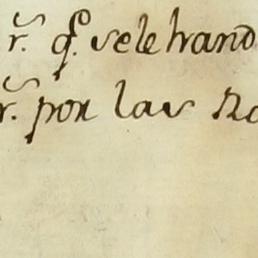 r. q.e se le hand
r. por las Ro